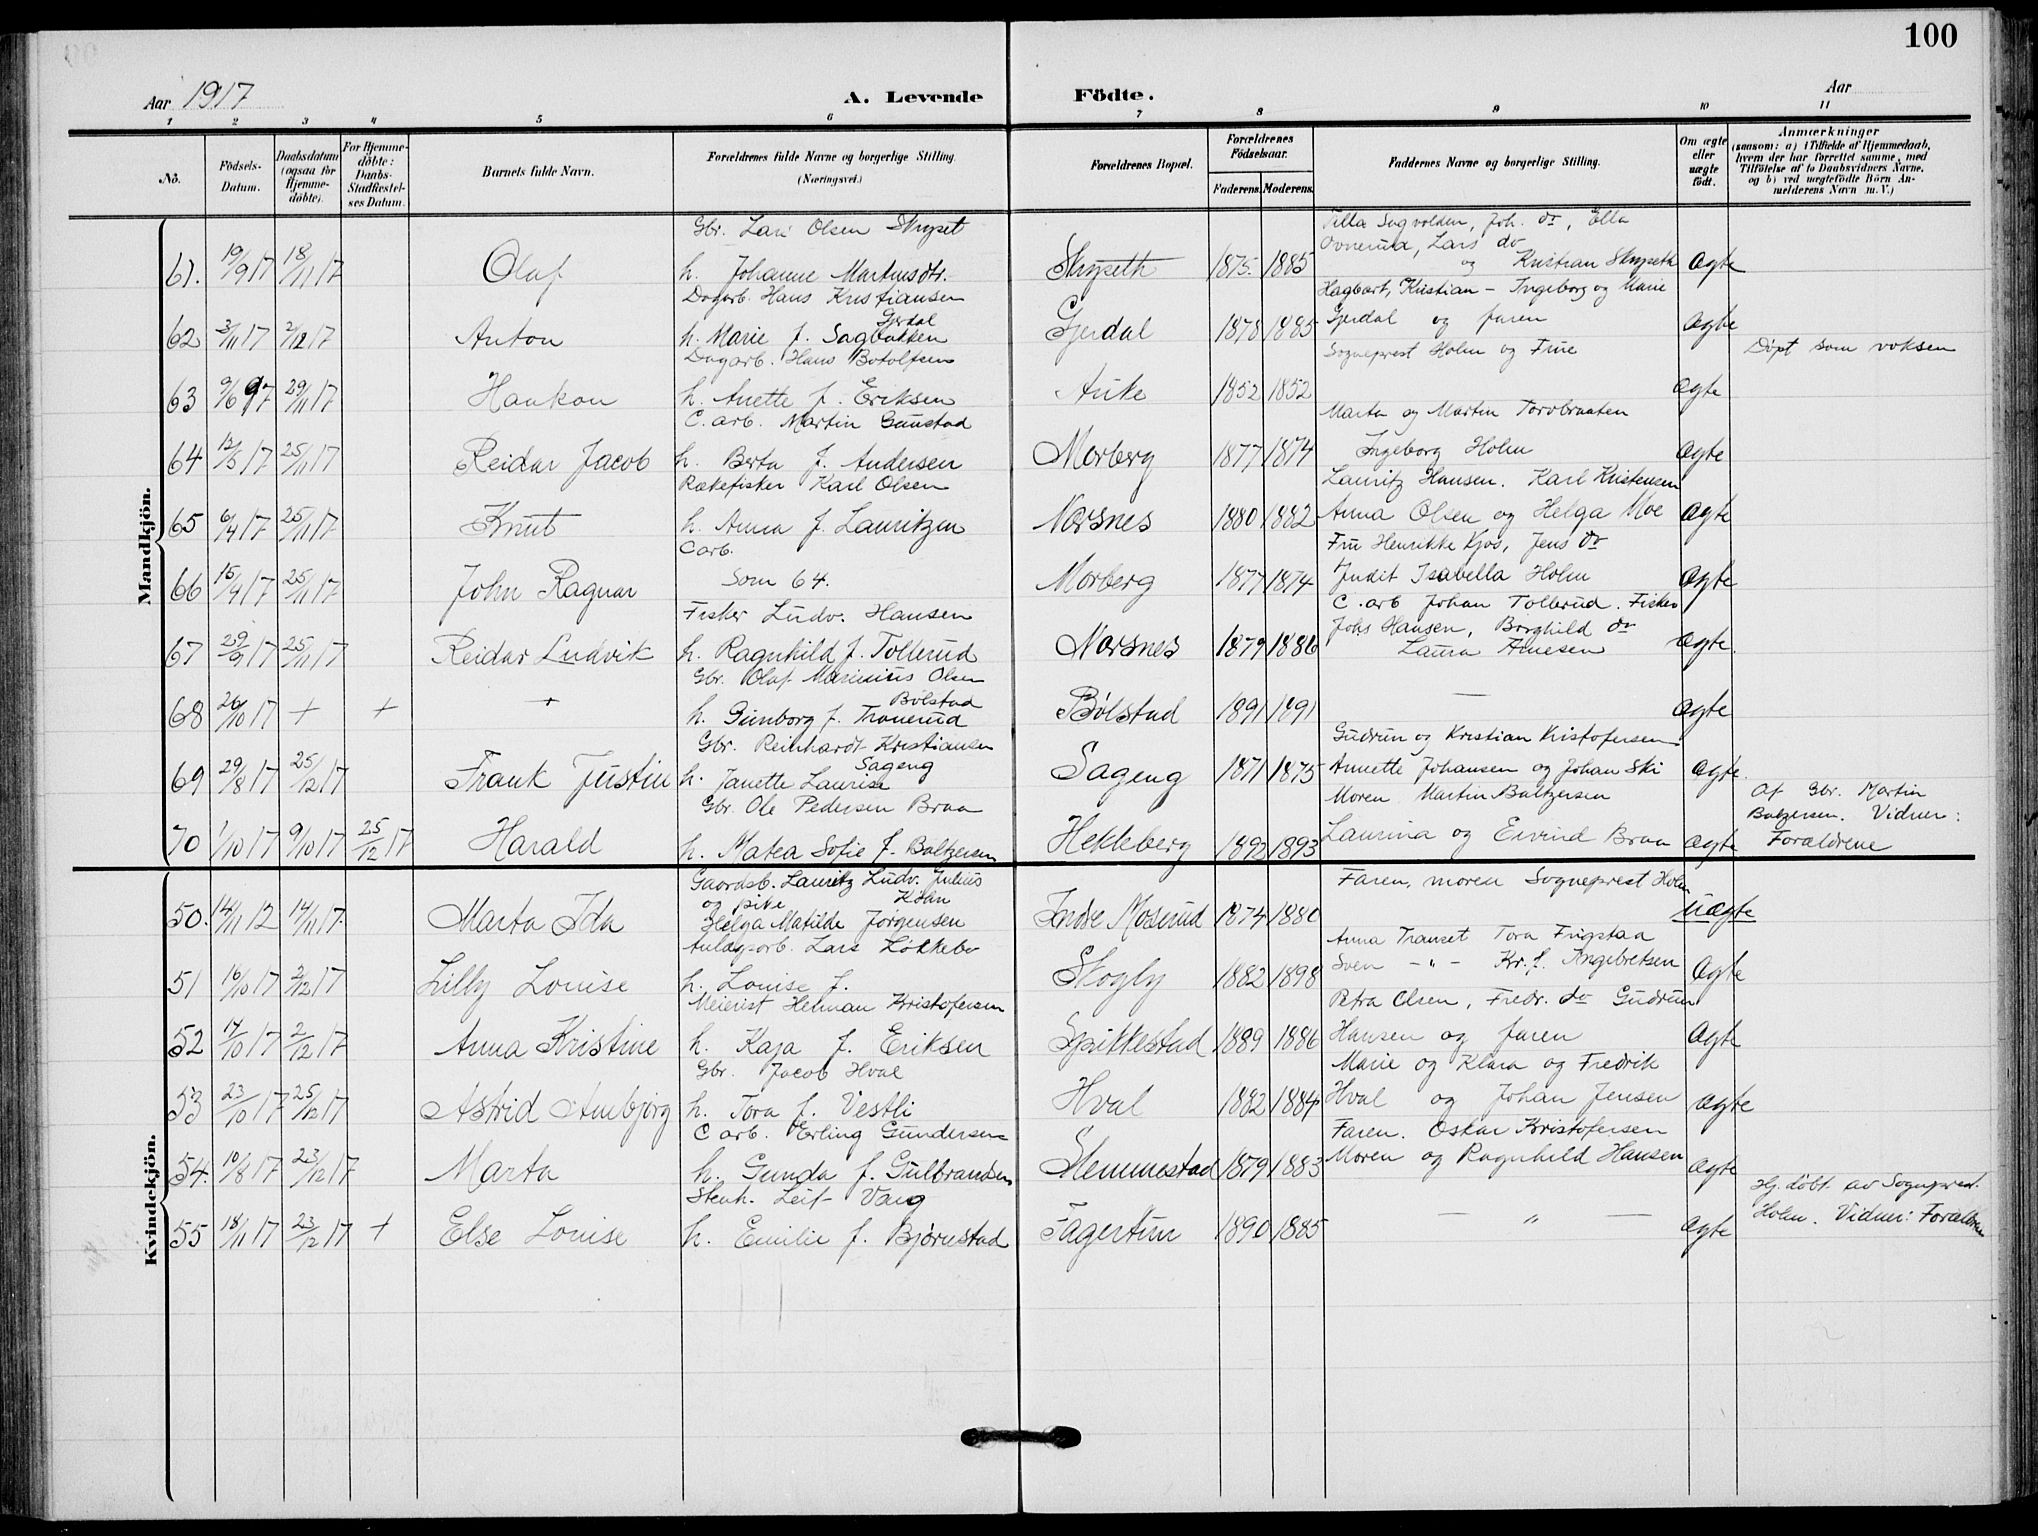 100
Aar 1917 A. Levende Födte. Aar
1 2 3 4 5 6 7 8 9 10 11
No.
Födsels-Datum.
Daabsdatum (ogsaa for Hjemme-döbte).
For Hjemme-döbte: Daabs-Stadfestel-ses Datum.
Barnets fulde Navn.
Forældrenes fulde Navne og borgerlige Stilling. (Næringsvei.)
Forældrenes Bopæl.
Forældrenes Födselsaar.
Faderens. Moderens.
Faddernes Navne og borgerlige Stilling.
Om ægte eller uægte födt.
Anmærkninger
(saasom: a) i Tilfælde af Hjemmedaab,
hvem der har forrettet samme, med
Tilföielse af to Daabsvidners Navne,
og b) ved uægtefödte Börn An-
melderens Navn m. V.)
Mandkjön.
Gbr. Lars Olsen Skryset
61. 19/9 17 18/11 17 Olaf h. Johanne Martinsdtr. Skryseth 1875. 1885 Ovnerud, Lars do og Kristian Skryseth ægte
Dagarb. Hans Kristiansen Gjerdal Hagbart, Kristian – Ingeborg og Marie
62 3/11 17 2/12 17 Anton h. Marie f. Sagbakken Gjerdal 1878 1885 Gjerdal og faren ægte
Dagarb. Hans Botolfsen Sogneprest Holm og Frue Döpt som voksen
63 9/6 97 29/11 17 Haakon h. Anette f. Eriksen Auke 1852 1852 ægte
C. arb. Martin Gunstad Marta og Martin Torvbraaten
64 12/3 17 25/11 17 Reidar Jacob h. Berta f. Andersen Morberg 1877 1874 Ingeborg Holm ægte
Rækefisker Karl Olsen Lauritz Hansen. Karl Kristensen
65 6/4 17 25/11 17 Knut h. Anna f. Lauritzen Næsnes 1880 1882 Anna Olsen og Helga Moe ægte
C arb. Fru Henrikke Kjos, Jens do
66 15/9 17 25/11 17 John Ragnar Som 64. Morberg 1877 1874 Judit Isabella Holm ægte
Fisker Ludv. Hansen C. arb Johan Tollerud. Fisker
67 29/9 17 25/11 17 Reidar Ludvik h. Ragnhild f. Tollerud Næsnes 1879 1886 Johs Hansen, Borghild do Laura Arnesen ægte.
Gbr. Olaf Marinius Olsen Bølstad
68 26/10 17 + + + h. Gunborg f. Tronerud Bølstad 1891 1891 — ægte
Gbr. Reinhardt Kristiansen Sageng Gudrun og Kristian Kristofersen
69 29/8 17 25/12 17 Frank Justin h. Janette Laurise Sageng 1871 1875 Annette Johansen og Johan Ski ægte.
Gbr. Ole Pedersen Braa Moren Martin Baltzersen Af Gbr. Martin Baltzersen. Vidner: Forældrene
70 1/10 17 9/10 17 25/12 17 Harald h. Matea Sofie f. Baltzersen Hekleberg 1892 1893 Laurina og Eivind Braa ægte
Kvindekjön.
Gaardsb. Lauritz Ludv. Julius og pike Faren, moren Sogneprest Holm
50. 14/11 12 14/11 17. Marta Ida Helga Matilde Jørgensen Indre Moserud 1874 1880 uægte
Anlægsarb. Lars Løkkebø Anna Transet Tora Frigstaa
51 16/10 17 2/12 17 Lilly Louise h. Louise f. Skogly 1882 1898 Sven – " – Kr. f. Ingebretsen ægte
Meierist Herman Kristofersen Petra Olsen, Fredr. do Gudrun
52 14/10 17 2/12 17 Anna Kristine h. Kaja f. Eriksen Spikkestad 1889 1886 Hansen og faren ægte
Gbr. Jacob Hval Marie og Klara og Fredrik
53 23/10 17 25/12 17 Astrid Ambjørg h. Tora f. Vestli Hval 1882 1884 Hval og Johan Jensen ægte
C arb. Erling Gundersen Faren. Oskar Kristofersen
54. 10/8 17 23/12 17 Marta h. Gunda f. Gulbrandsen Slemmestad 1879 1883 Moren og Ragnhild Hansen ægte
Stenh. Leif Varg Hj. döbt av Sogneprest. Holm. Vidner: Forældrene
55 18/11 17 23/12 17 + Else Louise h. Emilie f. Bjørnstad Fagertun 1890 1885 — " — ægte